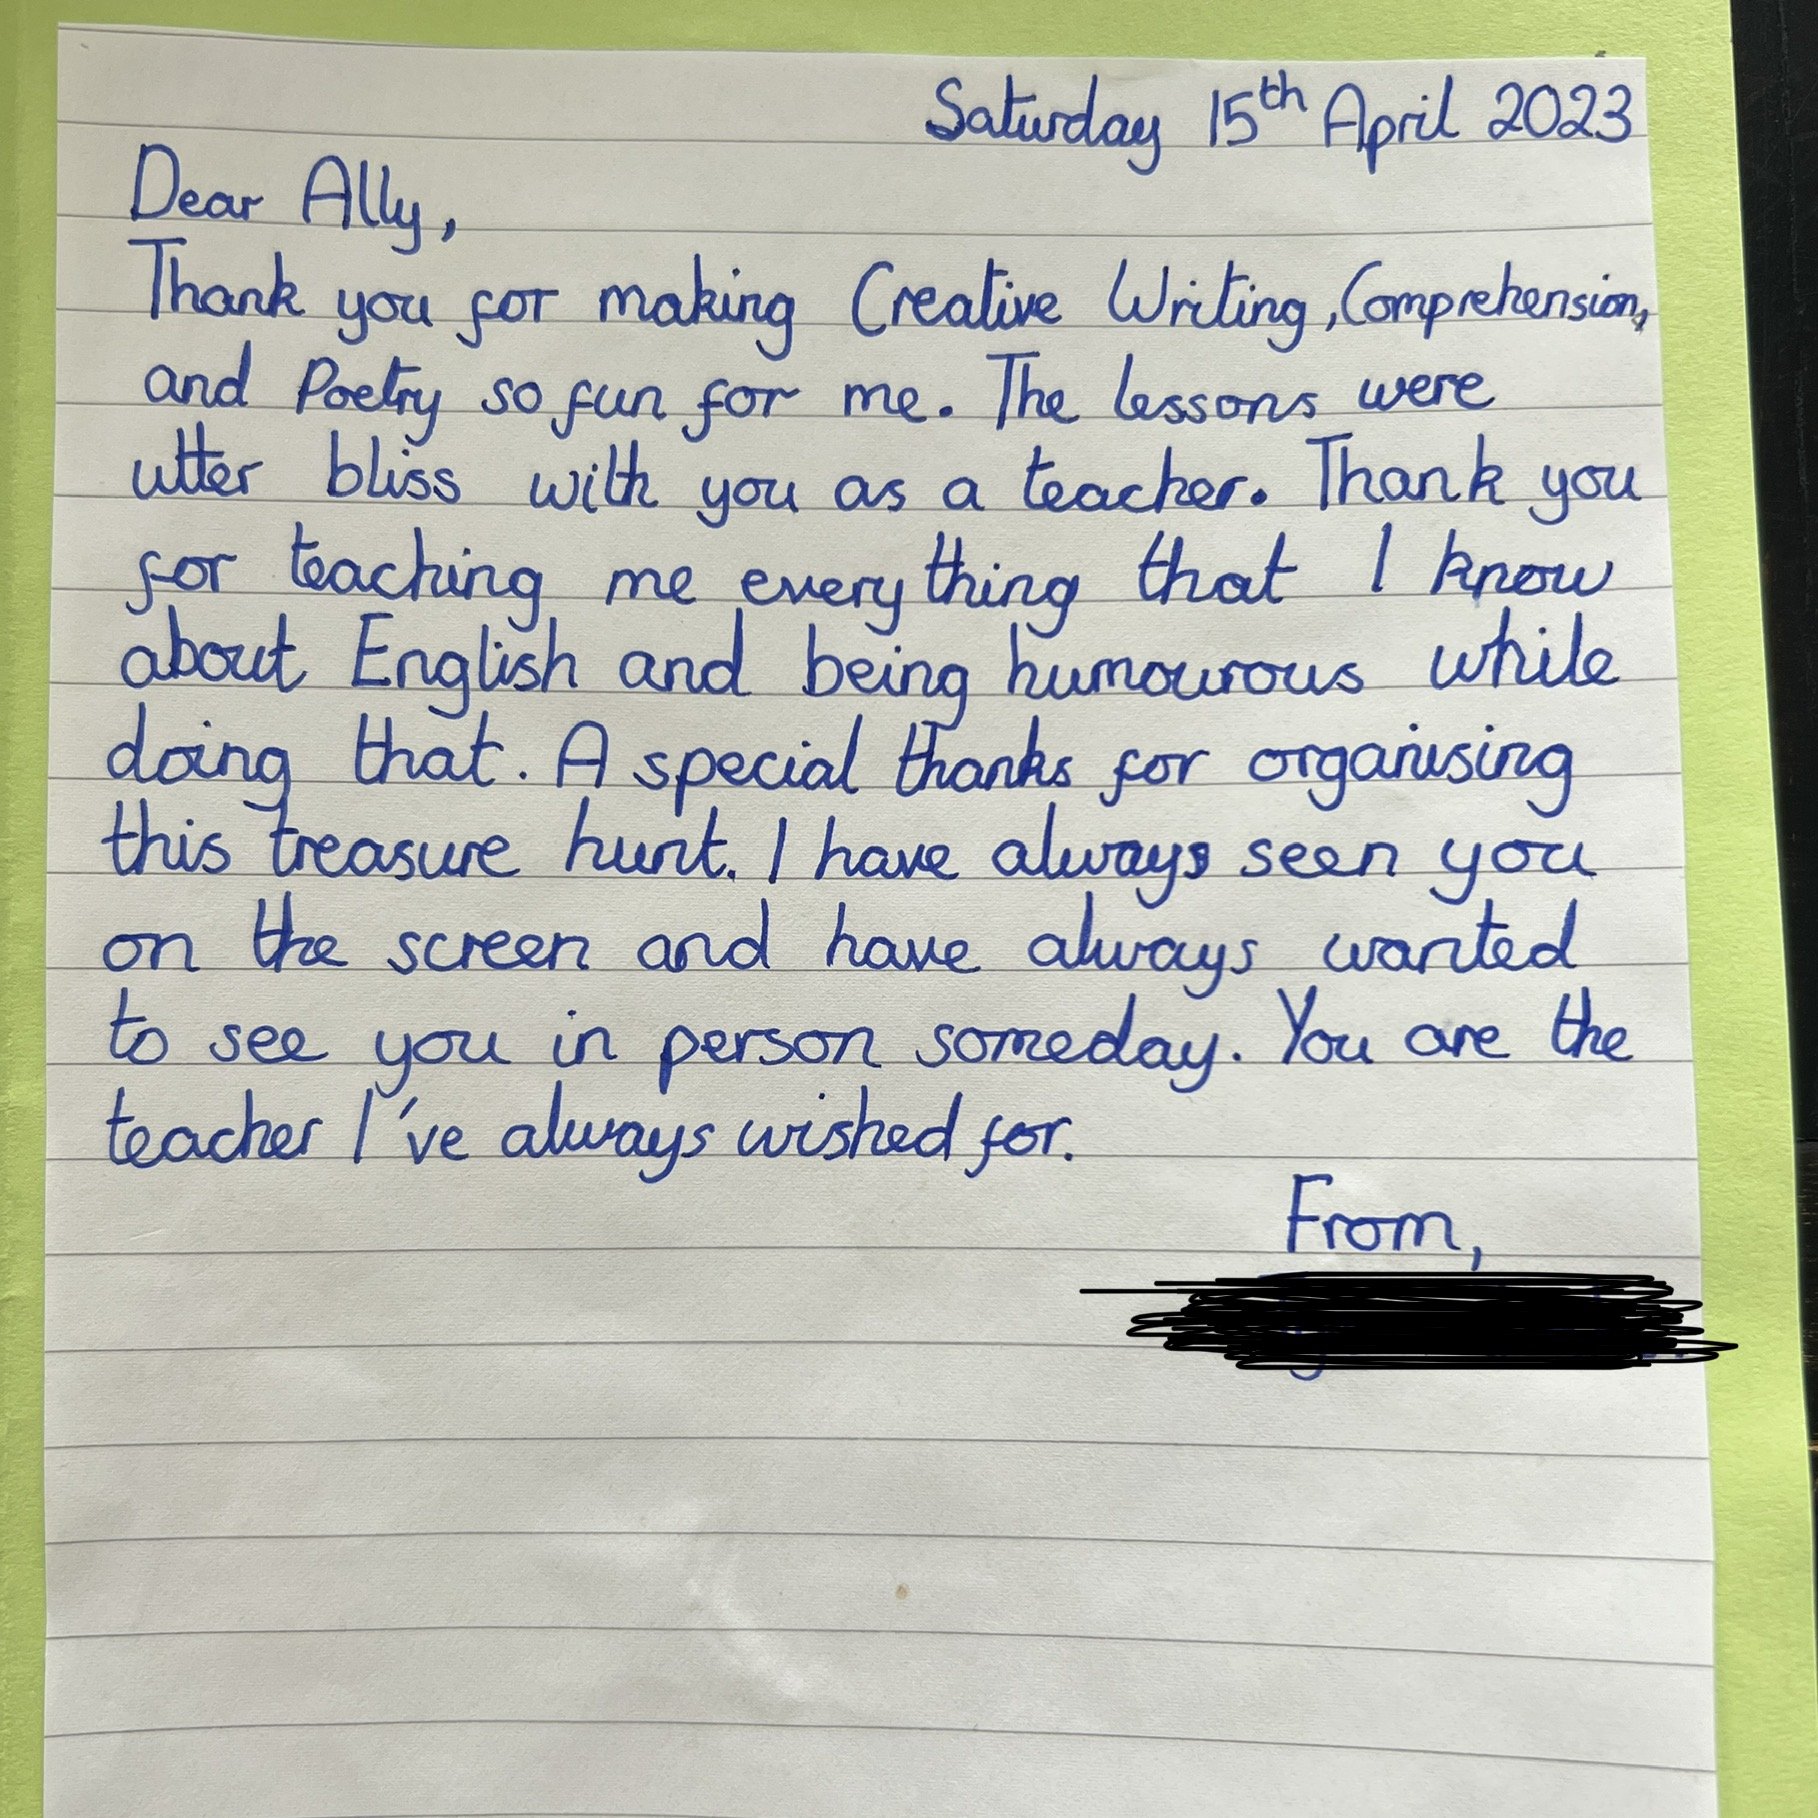 Saturday 15th April 2023
Dear Ally,
Thank you for making Creative Writing, Comprehension,
and Poetry so fun for me. The lessons were
utter bliss with you as a teacher. Thank you
for teaching me everything that I know
about English and being humourous while
doing that. A special thanks for organising
this treasure hunt. I have always seen you
on the screen and have always wanted
to see you in person someday. You are the
teacher I've always wished for.
From,